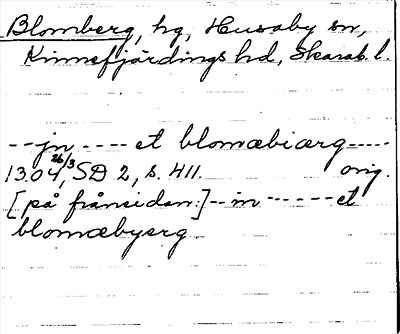 Blomberg, hg, Husaby sn,
Kinnefjärdings hd, Skarab. l.
--jn---- et blomæbiærg-----
1304 26/3, SD 2, s. 411. orig.
[på frånsidan:]--in------et
blomæbyerg